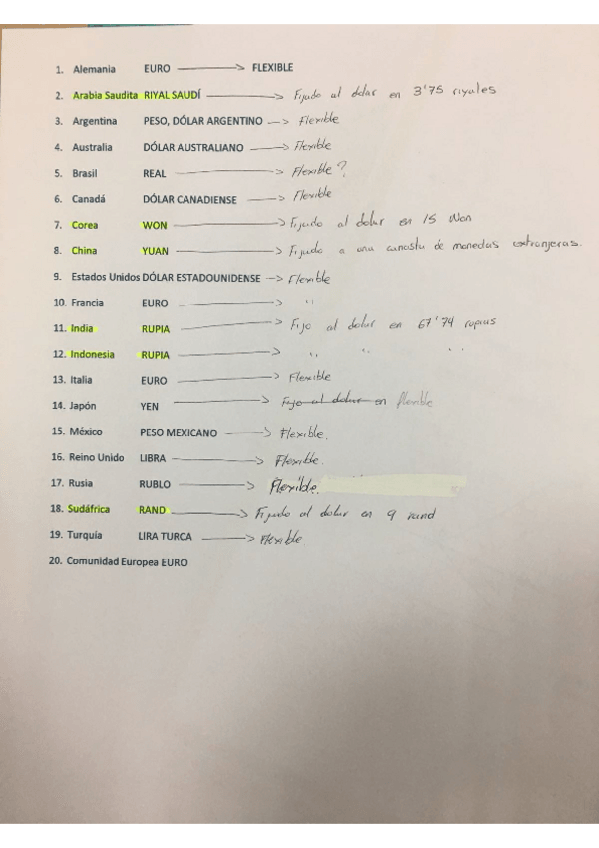 1. Alemania EURO → FLEXIBLE
2. Arabia Saudita RIYAL SAUDÍ → Fijado al dolar en 3'75 riyales
3. Argentina PESO, DÓLAR ARGENTINO → Flexible
4. Australia DÓLAR AUSTRALIANO → Flexible
5. Brasil REAL → Flexible?
6. Canadá DÓLAR CANADIENSE → Flexible
7. Corea WON → Fijado al dolar en 15 Won
8. China YUAN → Fijado a una canasta de monedas extranjeras.
9. Estados Unidos DÓLAR ESTADOUNIDENSE → Flexible
10. Francia EURO → ''
11. India RUPIA → Fijo al dolar en 67'74 rupias
12. Indonesia RUPIA → '' '' ''
13. Italia EURO → Flexible
14. Japón YEN → Fijo al dolar en flexible
15. México PESO MEXICANO → Flexible.
16. Reino Unido LIBRA → Flexible.
17. Rusia RUBLO → Flexible.
18. Sudáfrica RAND → Fijado al dolar en 9 rand
19. Turquía LIRA TURCA → Flexible.
20. Comunidad Europea EURO